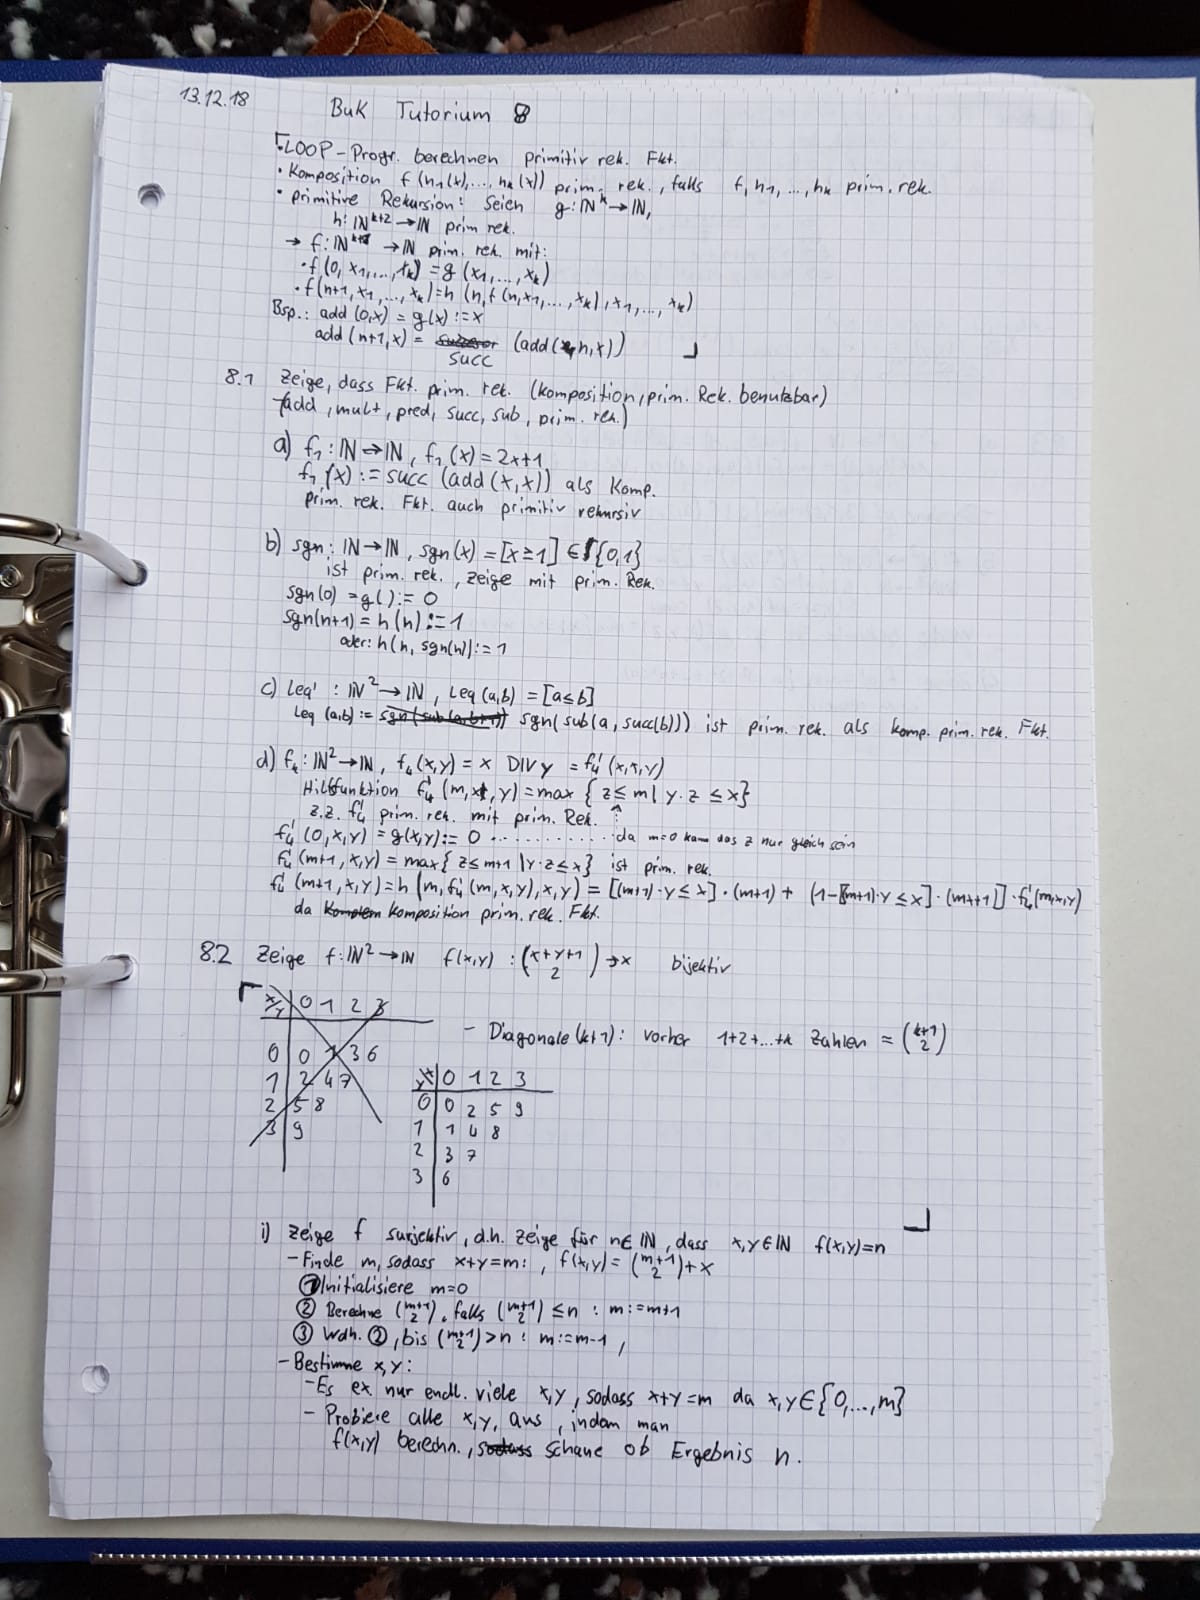 13.12.18
BuK Tutorium 8
• LOOP-Progr. berechnen primitiv rek. Fkt.
• Komposition f(h₁(x),...,hₖ(x)) prim. rek., falls f,h₁,...,hₖ prim. rek.
• primitive Rekursion: Seien g: ℕᵏ→ℕ,
h: ℕᵏ⁺²→ℕ prim rek.
→ f: ℕᵏ⁺¹ →ℕ prim. rek. mit:
• f(0, x₁,...,xₖ) = g(x₁,...,xₖ)
• f(n+1, x₁,...,xₖ) = h(n, f(n,x₁,...,xₖ), x₁,...,xₖ)
Bsp.: add(0,x) = g(x) := x
add(n+1,x) = succ (add(n,x))
8.1 Zeige, dass Fkt. prim. rek. (Komposition, prim. Rek. benutzbar)
(add, mult, pred, succ, sub, prim. rek.)
a) f₁: ℕ→ℕ, f₁(x) = 2x+1
f₁(x) := succ (add(x,x)) als Komp.
prim. rek. Fkt. auch primitiv rekursiv
b) sgn: ℕ→ℕ, sgn(x) = [x≥1] ∈ {0,1}
ist prim. rek., zeige mit prim. Rek.
sgn(0) = g() := 0
sgn(n+1) = h(n) := 1
oder: h(n, sgn(n)) := 1
c) Leq : ℕ²→ℕ, Leq(a,b) = [a≤b]
Leq(a,b) := sgn(sub(a, succ(b))) ist prim. rek. als komp. prim. rek. Fkt.
d) f₄: ℕ²→ℕ, f₄(x,y) = x DIV y = f₄'(x,x,y)
Hilfsfunktion f₄'(m,x,y) = max {z≤m | y·z ≤x}
z.z. f₄' prim. rek. mit prim. Rek.
f₄'(0,x,y) = g(x,y) := 0 ............ da m=0 kann das z nur gleich sein
f₄'(m+1,x,y) = max{z≤m+1 | y·z≤x} ist prim. rek.
f₄'(m+1,x,y) = h(m, f₄'(m,x,y), x,y) = [(m+1)·y≤x]·(m+1) + (1-[(m+1)·y≤x]·(m+1)]·f₄'(m,x,y)
da Komposition prim. rek. Fkt.
8.2 Zeige f: ℕ²→ℕ f(x,y) : (x+y+1 über 2) + x bijektiv
x/y 0 1 2 3
0 0 1 3 6
1 2 4 7
2 5 8
3 9
- Diagonale (k+1): vorher 1+2+...+k Zahlen = (k+1 über 2)
y/x 0 1 2 3
0 0 2 5 9
1 1 4 8
2 3 7
3 6
i) Zeige f surjektiv, d.h. zeige für n∈ℕ, dass x,y∈ℕ f(x,y)=n
- Finde m, sodass x+y=m:, f(x,y) = (m+1 über 2) + x
① Initialisiere m=0
② Berechne (m+1 über 2), falls (m+1 über 2) ≤ n : m:=m+1
③ Wdh. ②, bis (m+1 über 2) > n : m:=m-1,
- Bestimme x,y:
- Es ex. nur endl. viele x,y, sodass x+y=m da x,y∈{0,...,m}
- Probiere alle x,y, aus, indem man
f(x,y) berechn., schaue ob Ergebnis n.